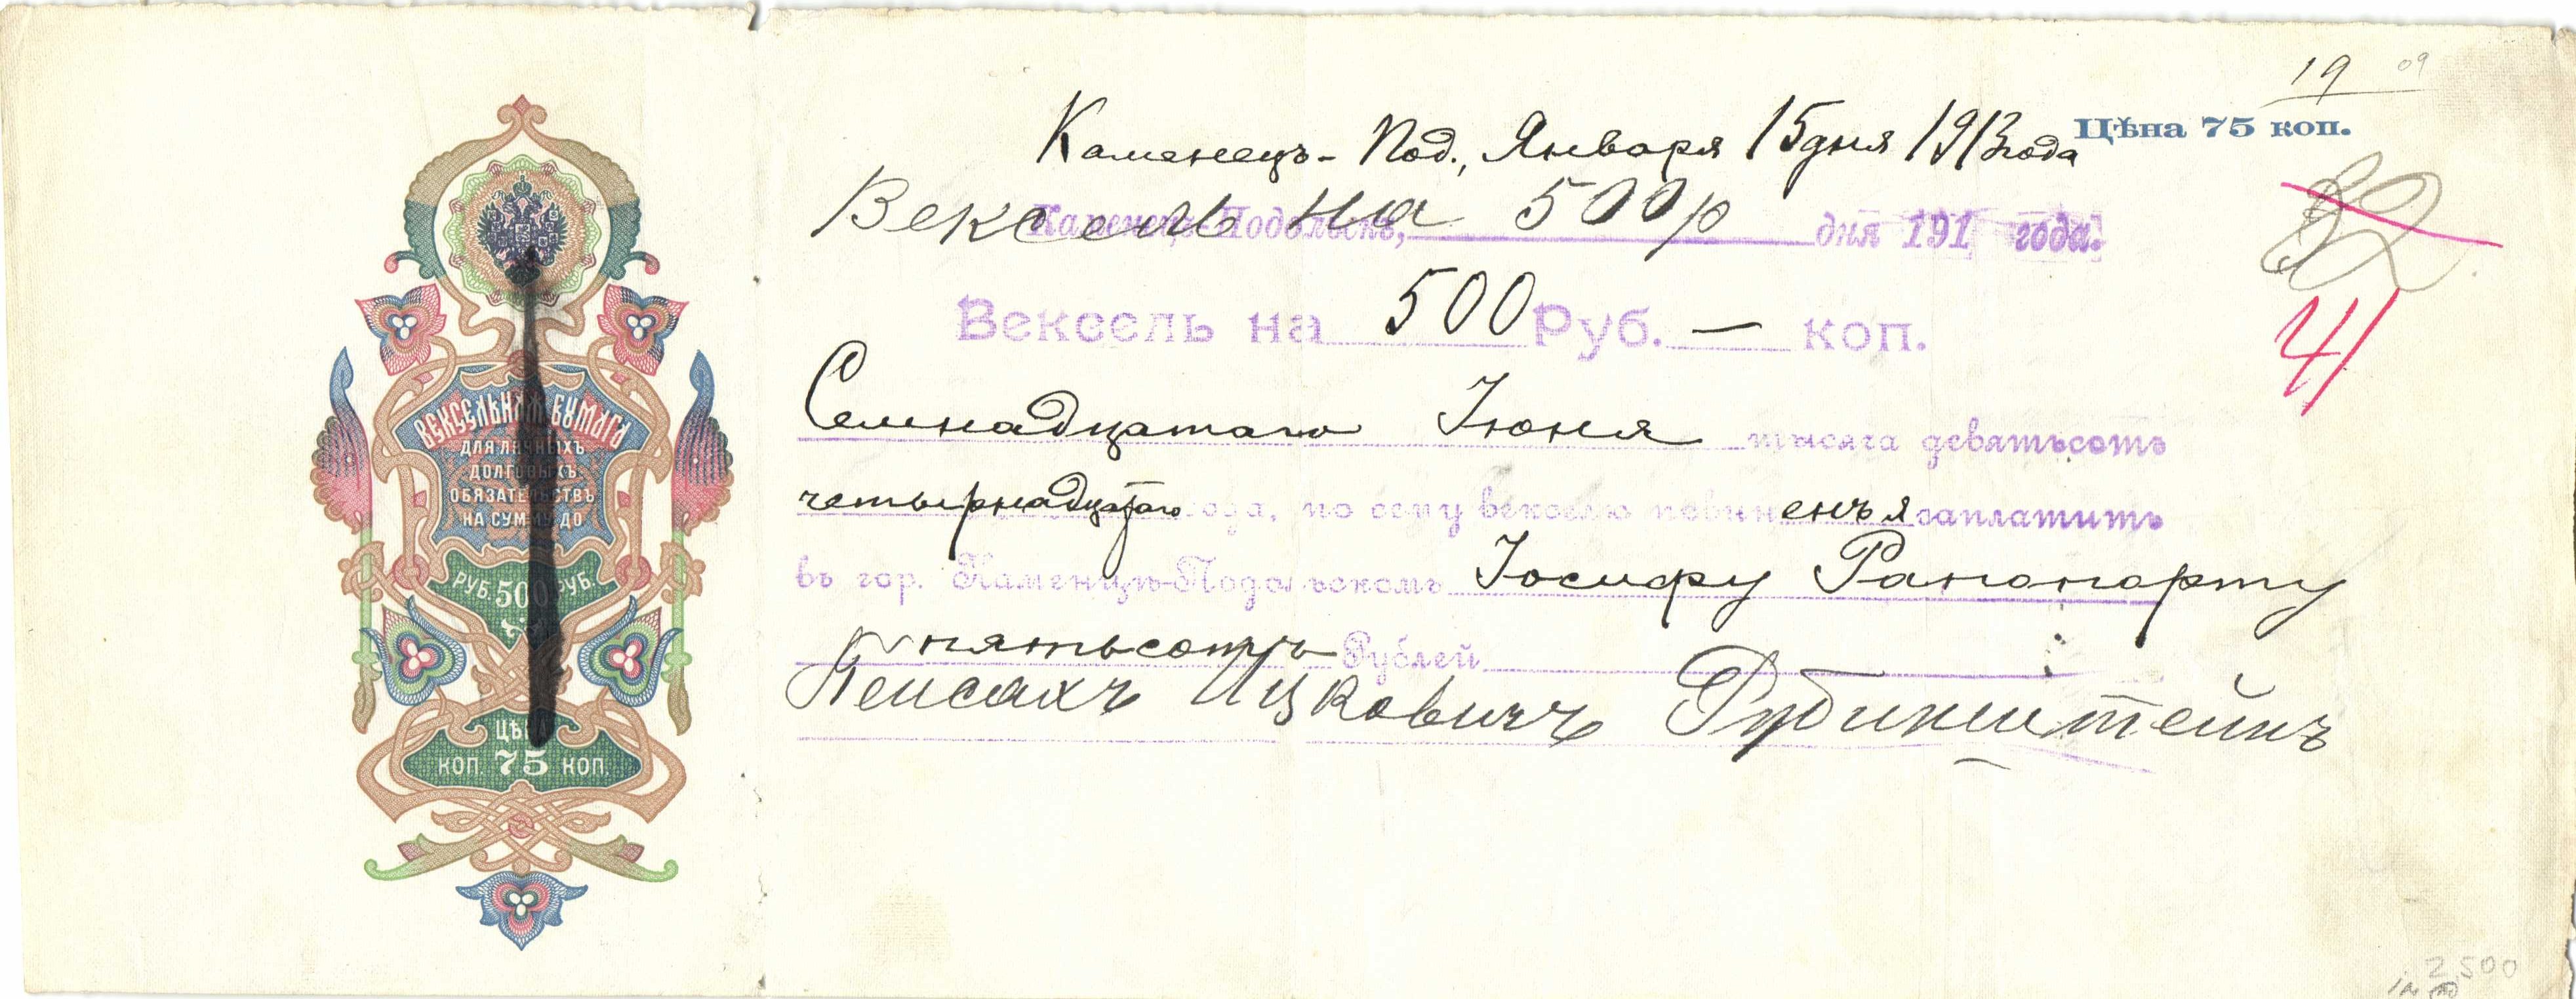 19 09
Цѣна 75 коп.
Каменецъ-Под., Января 15 дня 1913 года
Вексель на 500 р
Каменецъ-Подольскъ, дня 191 года.
32
Вексель на 500 Руб. — коп.
41
Семнадцатаго Іюня тысяча девятьсотъ
четырнадцатаго года, по сему векселю повиненъ я заплатить
въ гор. Каменцѣ-Подольскомъ Іосифу Рапопорту
пятьсотъ Рублей
Пейсахъ Ицковичъ Рубинштейнъ
ВЕКСЕЛЬНАЯ БУМАГА
ДЛЯ ЛИЧНЫХЪ
ДОЛГОВЫХЪ
ОБЯЗАТЕЛЬСТВЪ
НА СУММУ ДО
РУБ. 500 РУБ.
ЦѢНА
КОП. 75 КОП.
2500